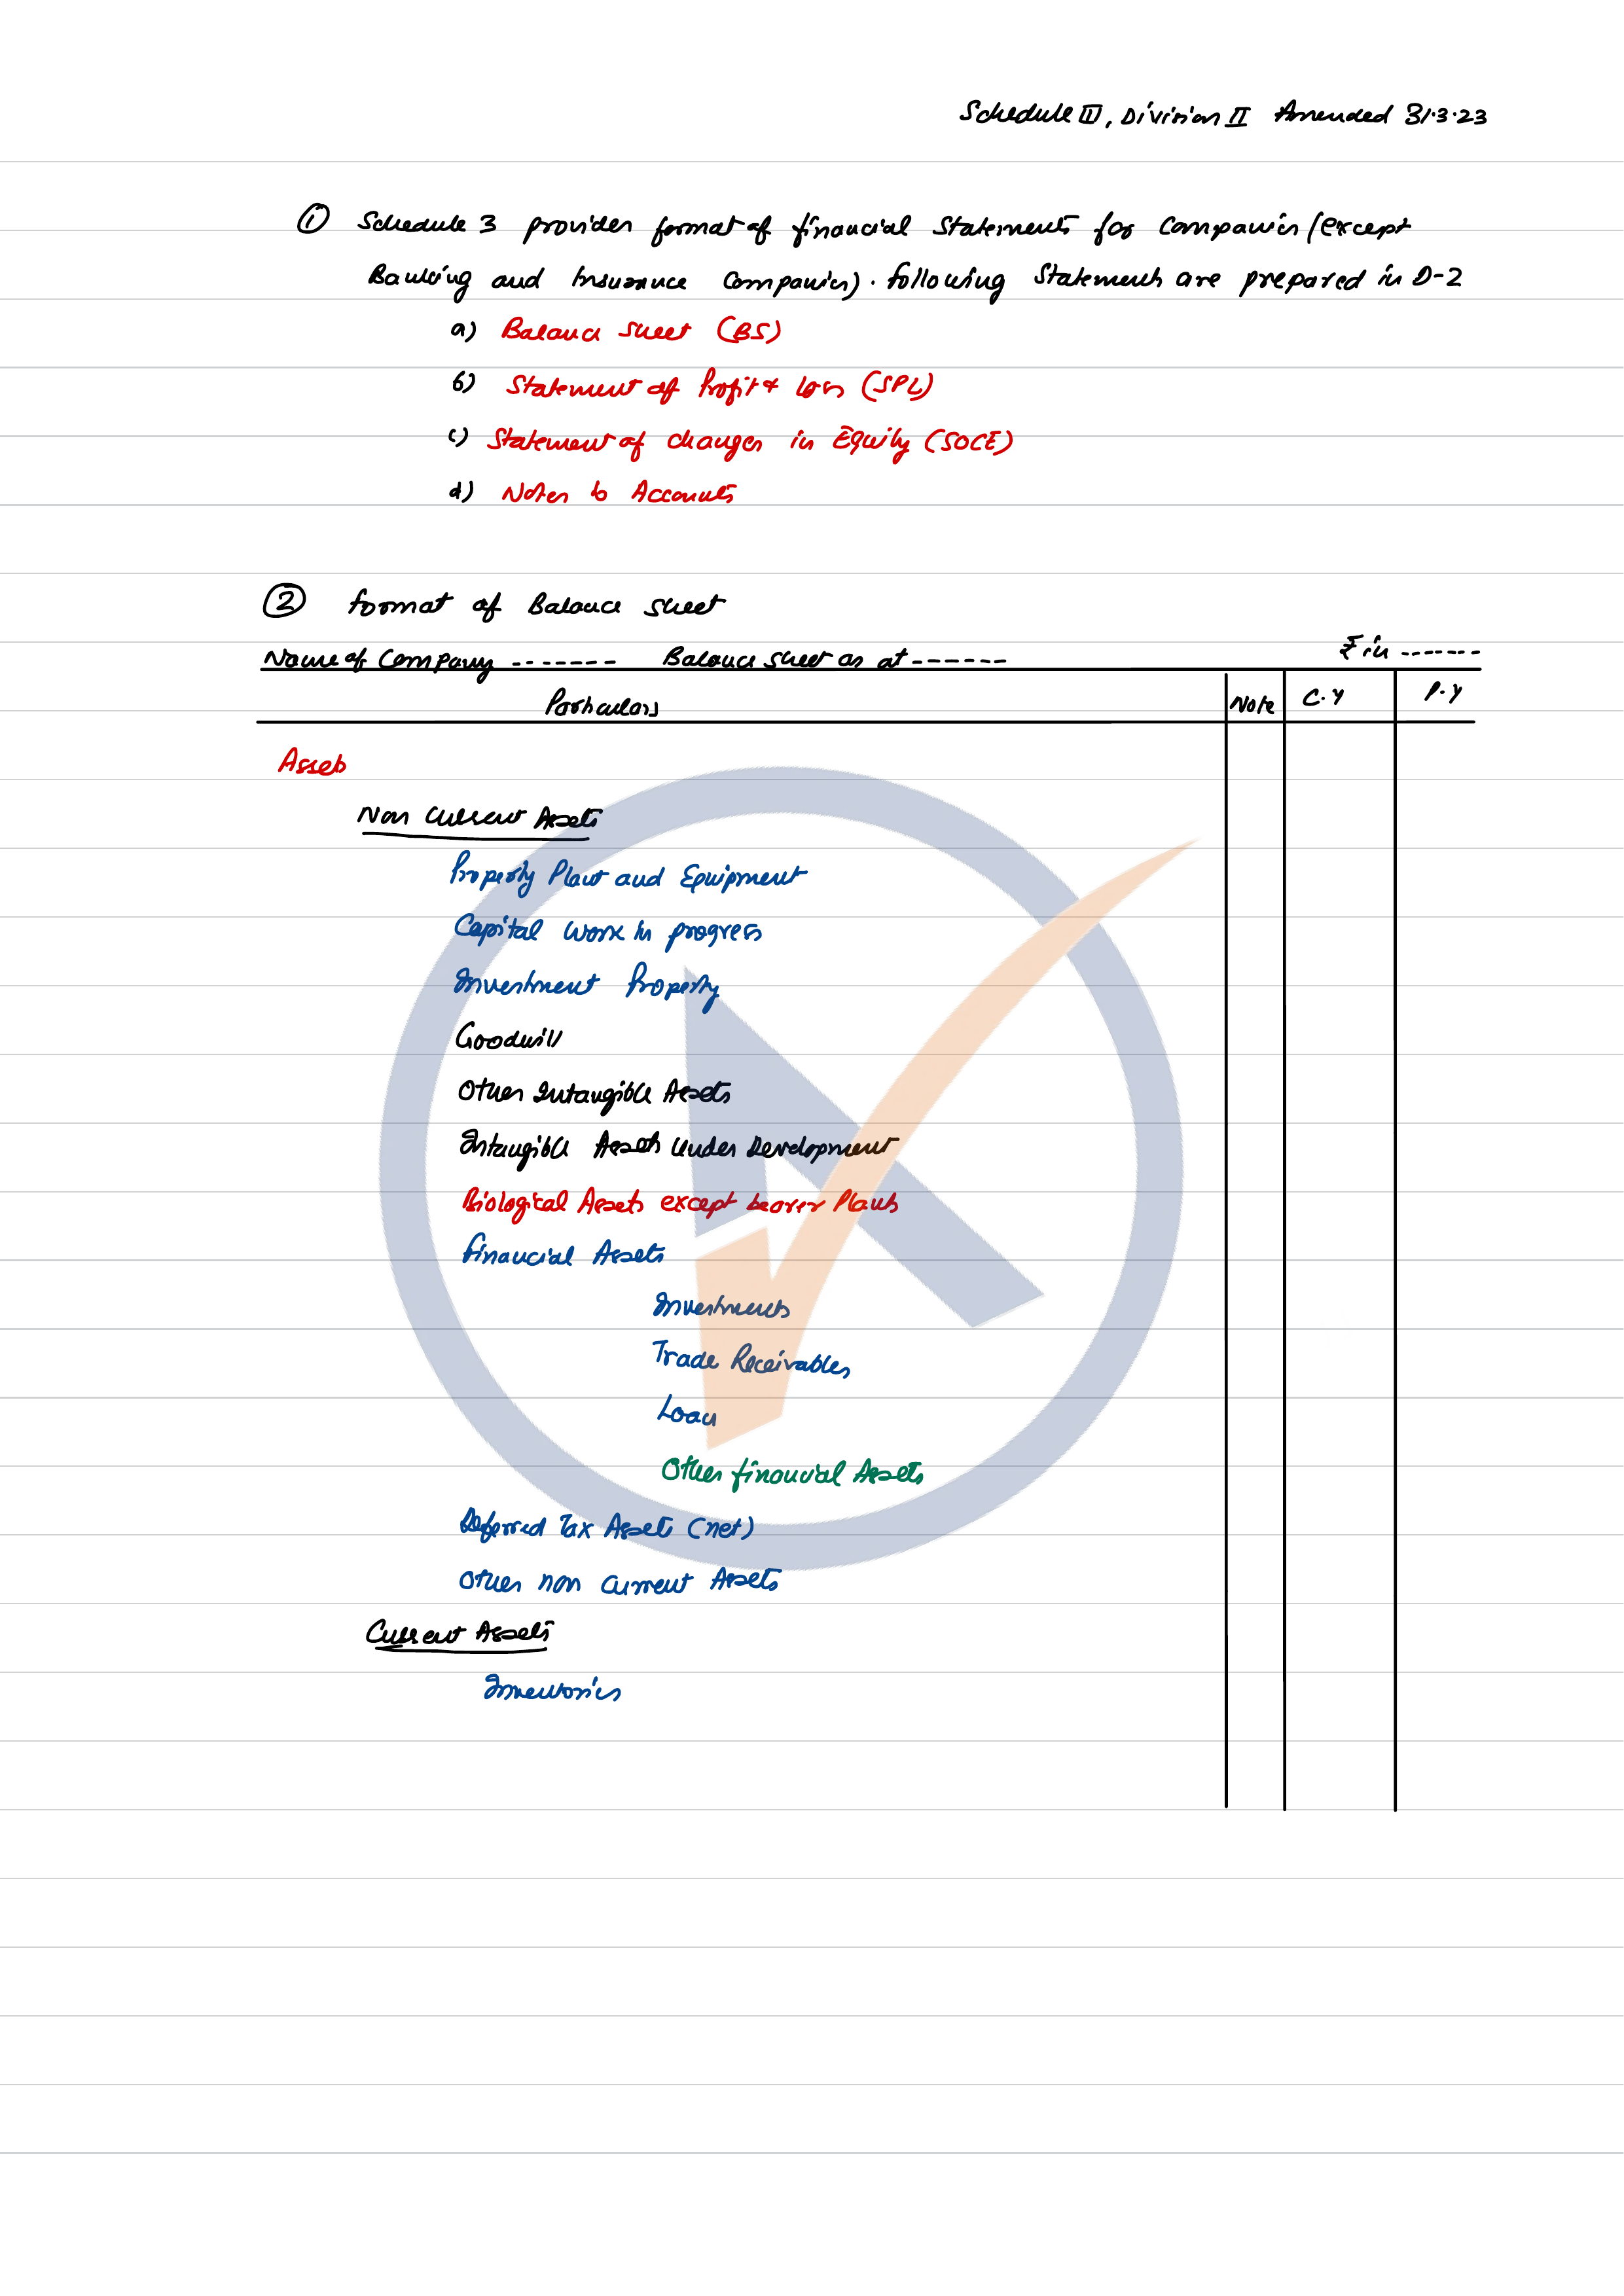 Schedule III, Division II Amended 31.3.23
① Schedule 3 provides format of financial Statements for Companies (except
Banking and Insurance Companies). following Statements are prepared in D-2
a) Balance Sheet (BS)
b) Statement of Profit & Loss (SPL)
c) Statement of changes in Equity (SOCE)
d) Notes to Accounts
② format of Balance sheet
Name of Company ------- Balance sheet as at ------ ₹ in -------
Particulars Note C.Y P.Y
Assets
Non Current Assets
Property Plant and Equipment
Capital work in progress
Investment Property
Goodwill
Other Intangible Assets
Intangible Assets Under Development
Biological Assets except bearer Plants
financial Assets
Investments
Trade Receivables
Loan
Other financial Assets
Deferred Tax Assets (net)
Other non current Assets
Current Assets
Inventories